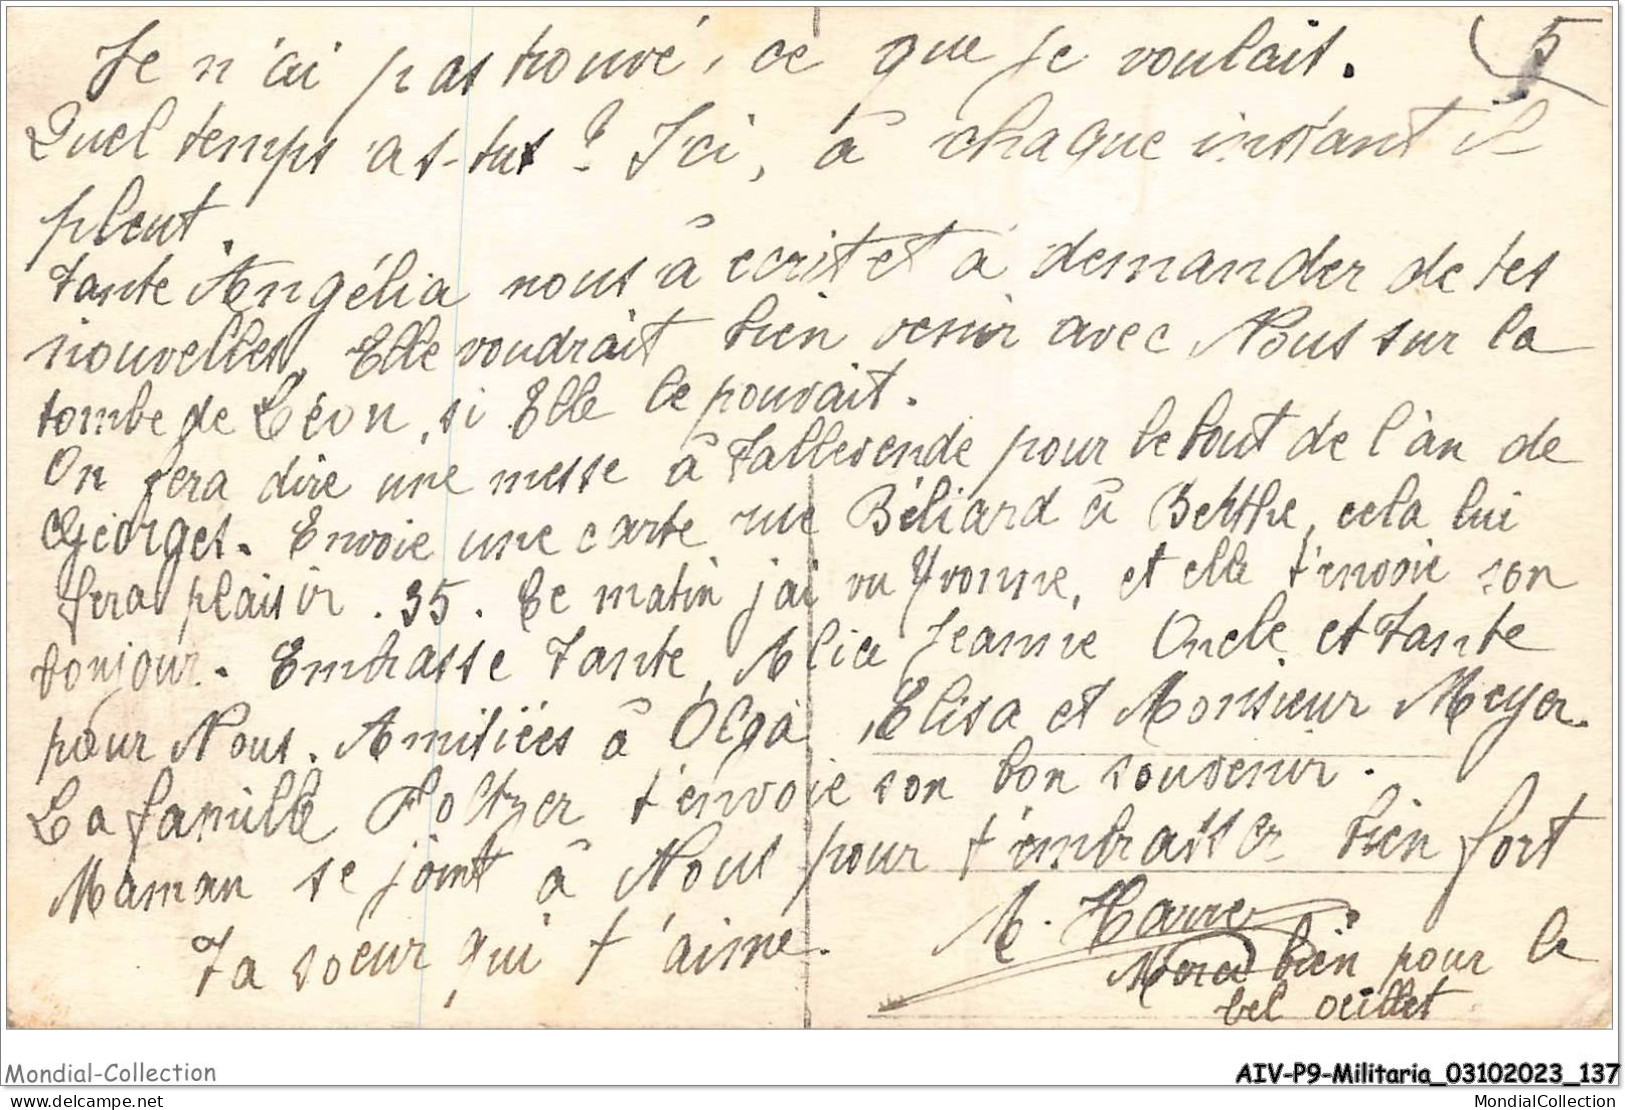 5
Je n'ai pas trouvé, ce que je voulais.
Quel temps as-tus ? Ici, à chaque instant il
pleut.
Tante Angélia nous à ecrit et à demander de tes
nouvelles. Elle voudrait bien venir avec Nous sur la
tombe de Léon, si Elle le pouvait.
On fera dire une messe à Tallevende pour le bout de l'àn de
Georges. Envoie une carte rue Béliard à Berthe, cela lui
fera plaisir. 35. Ce matin j'ai vu Yvonne, et elle t'envoie son
bonjour. Embrasse Tante, Alice Jeanne Oncle et Tante
pour Nous. Amitiées à Olga, Elisa et Monsieur Meyer.
La famille Foltzer t'envoie son bon souvenir.
Maman se joint à Nous pour t'embrasser bien fort
Ta soeur qui t'aime. M. Havre
Merci bien pour le
bel oeillet
Mondial-Collection
AIV-P9-Militaria_03102023_137
www.delcampe.net
MondialCollection